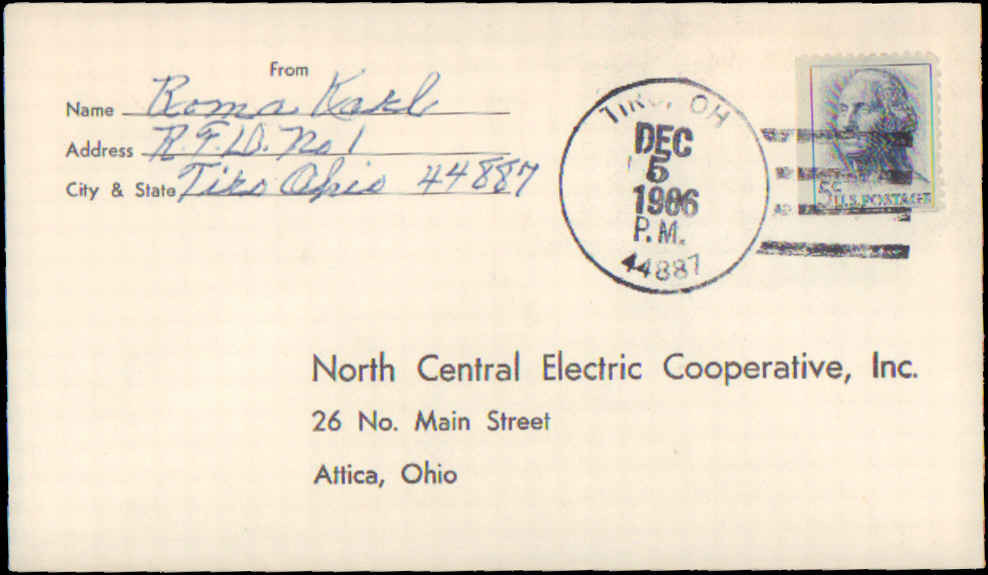 From
Name Roma Karl
Address R.F.D. No 1
City & State Tiro Ohio 44887
TIRO, OH
DEC
5
1986
P.M.
44887
5c
U.S. POSTAGE
North Central Electric Cooperative, Inc.
26 No. Main Street
Attica, Ohio